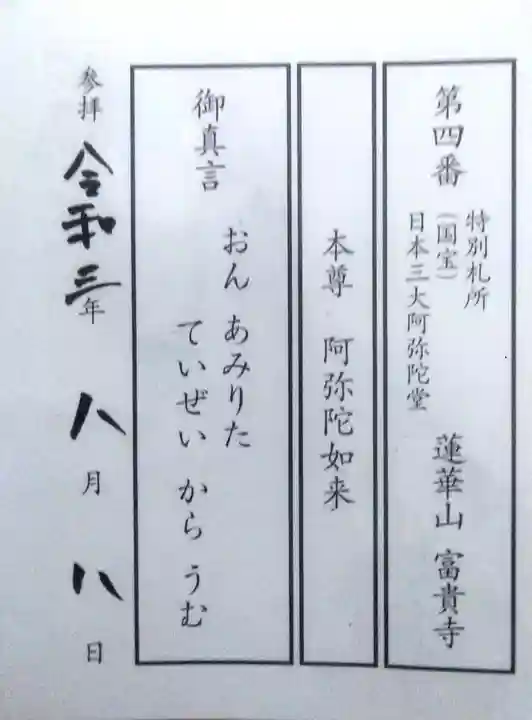 第四番 特別札所
(国宝)
日本三大阿弥陀堂 蓮華山 富貴寺
本尊 阿弥陀如来
御真言 おん あみりた
ていぜい から うむ
参拝 令和三年 八月 八日